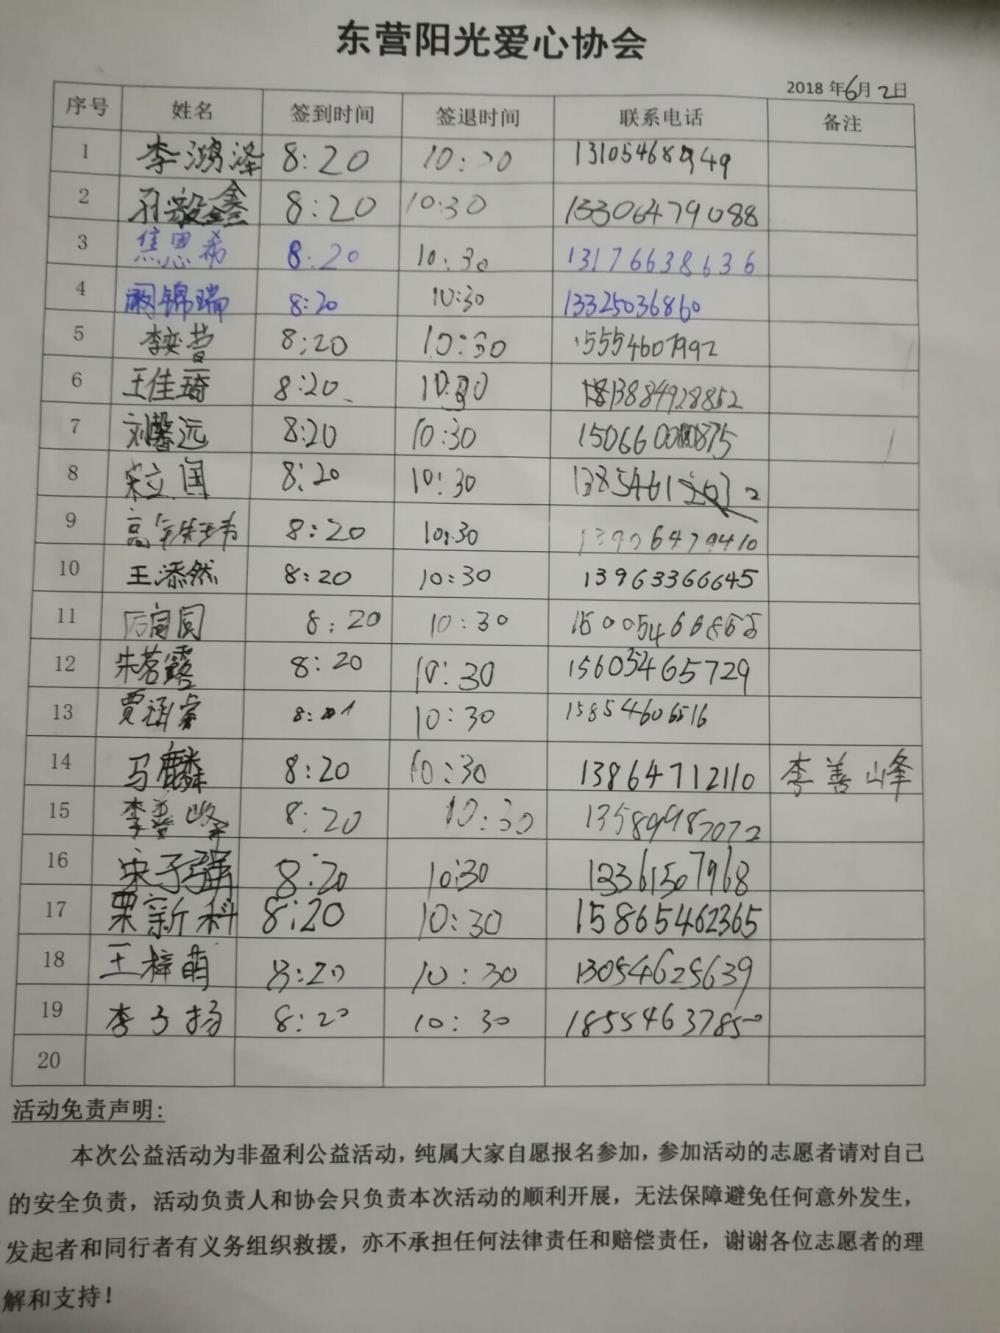 东营阳光爱心协会
2018年6月2日
序号 姓名 签到时间 签退时间 联系电话 备注
1 李鸿泽 8:20 10:20
2 孙毅鑫 8:20 10:30 13306479088
3 焦思希 8:20 10:30 13176638636
4 阚锦瑞 8:20 10:30 13325036860
5 李奕萱 8:20 10:30 15554607992
6 王佳琦 8:20 10:30
7 刘馨远 8:20 10:30
8 宋立国 8:20 10:30
9 8:20 10:30 13906479410
10 王添然 8:20 10:30 13963366645
11 8:20 10:30
12 朱茗露 8:20 10:30 15605465729
13 贾涵睿 10:30 15854606516
14 马麟 8:20 10:30 13864712110 李善峰
15 李善峰 8:20 10:30 13589987072
16 宋子骐 8:20 10:30 13361507968
17 栗新科 8:20 10:30 15865462365
18 王梓萌 8:20 10:30 13054625639
19 李子扬 8:20 10:30 18554637850
20
活动免责声明:
本次公益活动为非盈利公益活动，纯属大家自愿报名参加，参加活动的志愿者请对自己
的安全负责，活动负责人和协会只负责本次活动的顺利开展，无法保障避免任何意外发生，
发起者和同行者有义务组织救援，亦不承担任何法律责任和赔偿责任，谢谢各位志愿者的理
解和支持！